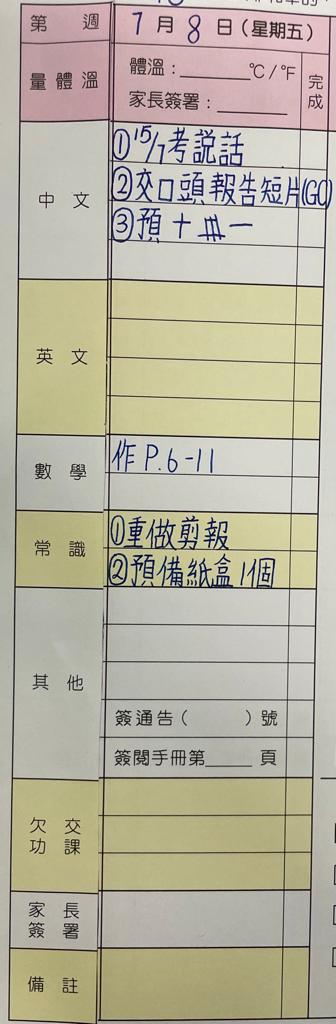 第 週 7 月 8 日(星期五)
量體溫
體溫:______℃/℉
家長簽署:______
完成
中文
①15/7考說話
②交口頭報告短片(GC)
③預十卌一
英文
數學
作P.6-11
常識
①重做剪報
②預備紙盒1個
其他
簽通告( )號
簽閱手冊第____頁
欠交
功課
家長
簽署
備註